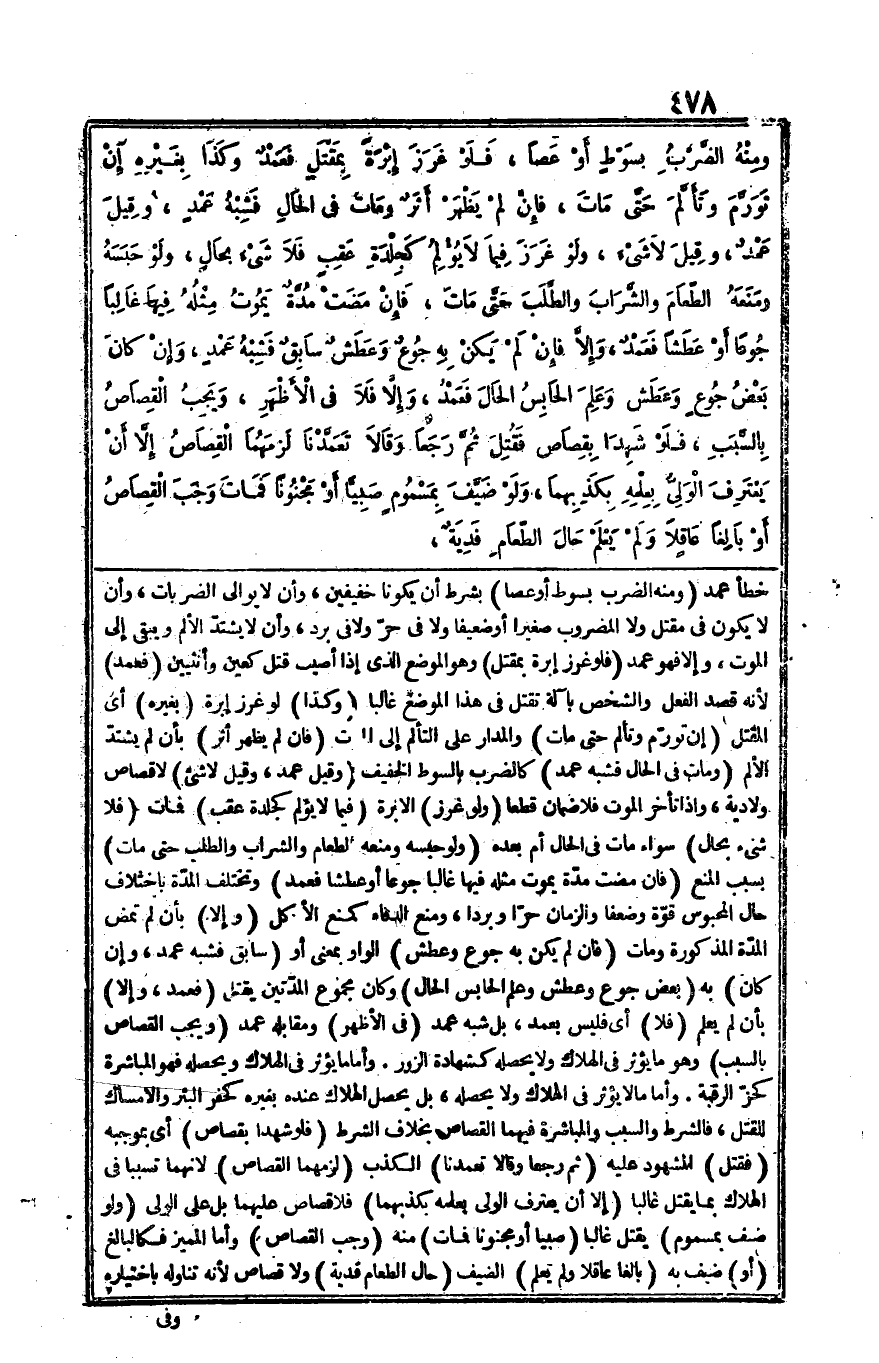 ٤٧٨
ومِنْهُ الضَّرْبُ بِسَوْطٍ أَوْ عَصًا ، فَلَوْ غَرَزَ إِبْرَةً بِمَقْتَلٍ فَعَمْدٌ وكَذَا بِغَيْرِهِ إِنْ
تَوَرَّمَ وتَأَلَّمَ حَتَّى مَاتَ ، فإِنْ لَمْ يَظْهَرْ أَثَرٌ ومَاتَ فى الحَالِ فَشِبْهُ عَمْدٍ ، وقِيلَ
عَمْدٌ ، وقِيلَ لاَ شَىْءَ ، ولَوْ غَرَزَ فِيمَا لاَ يُؤْلِمُ كَجِلْدَةِ عَقِبٍ فَلاَ شَىْءَ بحَالٍ ، ولَوْ حَبَسَهُ
ومَنَعَهُ الطَّعَامَ والشَّرَابَ والطَّلَبَ حَتَّى مَاتَ ، فَإِنْ مَضَتْ مُدَّةٌ يَمُوتُ مِثْلُهُ فِيهَا غَالِبًا
جُوعًا أَوْ عَطَشًا فَعَمْدٌ ، وَإِلاَّ فإِنْ لَمْ يَكُنْ بِهِ جُوعٌ وَعَطَشٌ سَابِقٌ فَشِبْهُ عَمْدٍ ، وَإِنْ كَانَ
بَعْضُ جُوعٍ وَعَطَشٍ وَعَلِمَ الحَابِسُ الحَالَ فَعَمْدٌ ، وَإِلَّا فَلَا فى الْأَظْهَرِ ، وَيَجِبُ الْقِصَاصُ
بِالسَّبَبِ ، فَلَوْ شَهِدَا بِقِصَاصٍ فَقُتِلَ ثُمَّ رَجَعَا وَقَالَا تَعَمَّدْنَا لَزِمَهُمَا الْقِصَاصُ إِلَّا أَنْ
يَعْتَرِفَ الْوَلِيُّ بِعِلْمِهِ بِكَذِبِهِمَا ، وَلَوْ ضَيَّفَ بِمَسْمُومٍ صَبِيًّا أَوْ مَجْنُونًا فَمَاتَ وَجَبَ الْقِصَاصُ
أَوْ بَالِغًا عَاقِلاً وَلَمْ يَعْلَمْ حَالَ الطَّعَامِ فَدِيَةٌ ،
خطأ عمد (ومنه الضرب بسوط أوعصا) بشرط أن يكونا خفيفين ، وأن لا يوالى الضربات ، وأن
لا يكون فى مقتل ولا المضروب صغيرا أوضعيفا ولا فى حرّ ولافى برد ، وأن لايشتدّ الألم ويبقى إلى
الموت ، وإلافهو عمد (فلوغرز إبرة بمقتل) وهوالموضع الذى إذا أصيب قتل كعين وأنثيين (فعمد)
لأنه قصد الفعل والشخص بآلة تقتل فى هذا الموضع غالبا (وكذا) لو غرز إبرة (بغيره) أى
المقتل (إن تورّم وتألم حتى مات) والمدار على التألم إلى ت (فان لم يظهر أثر) بأن لم يشتدّ
الألم (ومات فى الحال فشبه عمد) كالضرب بالسوط الخفيف (وقيل عمد ، وقيل لاشئ) لاقصاص
ولادية ، واذا تأخر الموت فلاضمان قطعا (ولو غرز) الابرة (فيما لايؤلم كجلدة عقب) فمات (فلا
شىء بحال) سواء مات فى الحال أم بعده (ولوحبسه ومنعه الطعام والشراب والطلب حتى مات)
بسبب المنع (فان مضت مدّة يموت مثله فيها غالبا جوعا أوعطشا فعمد) وتختلف المدّة باختلاف
حال المحبوس قوّة وضعفا والزمان حرّا وبردا ، ومنع الدفاء كمنع الأكل (وإلا) بأن لم تمض
المدّة المذكورة ومات (فان لم يكن به جوع وعطش) الواو بمعنى أو (سابق فشبه عمد ، وإن
كان) به (بعض جوع وعطش وعلم الحابس الحال) وكان مجموع المدّتين يقتل (فعمد ، وإلا)
بأن لم يعلم (فلا) أى فليس بعمد ، بل شبه عمد (فى الأظهر) ومقابله عمد (ويجب القصاص
بالسبب) وهو مايؤثر فى الهلاك ولايحصله كشهادة الزور . وأمامايؤثر فى الهلاك ويحصله فهو المباشرة
كحزّ الرقبة . وأما مالايؤثر فى الهلاك ولا يحصله ، بل يحصل الهلاك عنده بغيره كحفر البئر والامساك
للقتل ، فالشرط والسبب والمباشرة فيهما القصاص بخلاف الشرط (فلوشهدا بقصاص) أى بموجبه
(فقتل) المشهود عليه (ثم رجعا وقالا تعمدنا) الكذب (لزمهما القصاص) لانهما تسببا فى
الهلاك بمايقتل غالبا (إلا أن يعترف الولى بعلمه بكذبهما) فلاقصاص عليهما بل على الولى (ولو
ضيف بمسموم) يقتل غالبا (صبيا أومجنونا فمات) منه (وجب القصاص) وأما المميز فكالبالغ
(أو) ضيف به (بالغا عاقلا ولم يعلم) الضيف (حال الطعام فدية) ولا قصاص لأنه تناوله باختياره
وفى